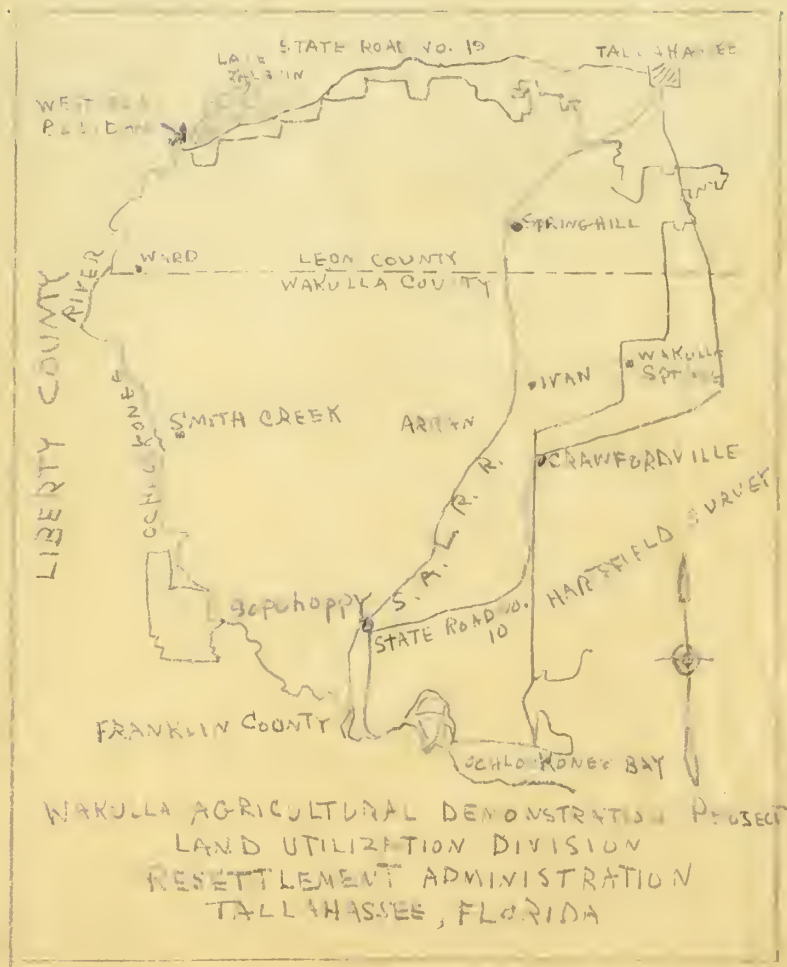 STATE ROAD NO. 19
TALLAHASSEE
LAKE
SPRINGHILL
WARD
LEON COUNTY
WAKULLA COUNTY
RIVER
LIBERTY COUNTY
OCHLOCKONEE
IVAN
WAKULLA
SPRINGS
SMITH CREEK
ARRAN
CRAWFORDVILLE
S. A. L. R. R.
HARTSFIELD SURVEY
Sopchoppy
STATE ROAD NO.
10
FRANKLIN COUNTY
OCHLOKONEE BAY
WAKULLA AGRICULTURAL DEMONSTRATION PROJECT
LAND UTILIZATION DIVISION
RESETTLEMENT ADMINISTRATION
TALLAHASSEE, FLORIDA